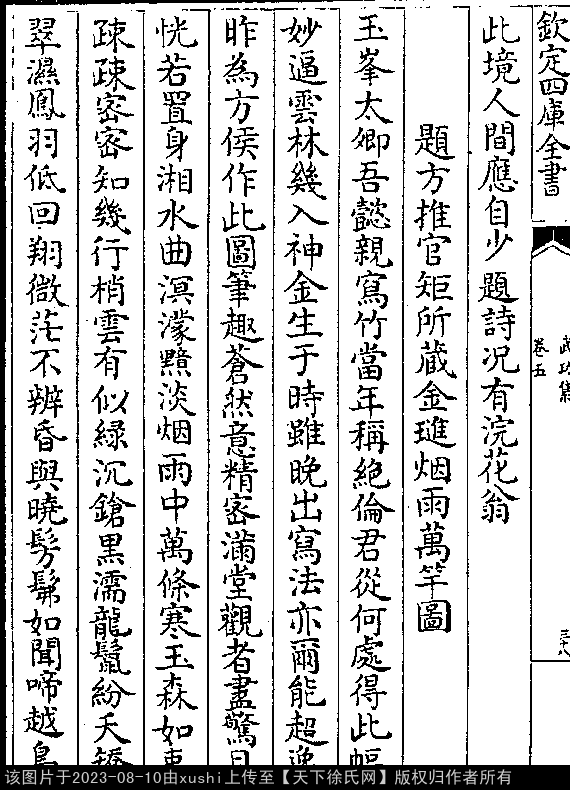 欽定四庫全書
武功集
卷五
三十八
此境人間應自少題詩况有浣花翁
題方推官矩所藏金璡烟雨萬竿圖
玉峯太卿吾懿親寫竹當年稱絶倫君從何處得此幅
妙逼雲林幾入神金生于時雖晚出寫法亦爾能超逸
昨為方侯作此圖筆趣蒼然意精密滿堂觀者盡驚目
恍若置身湘水曲溟濛黯淡烟雨中萬條寒玉森如束
疎疎密密知幾行梢雲有似緑沉鎗黒濡龍鬛紛夭矯
翠濕鳳羽低回翔微茫不辨昏與曉髣髴如聞啼越鳥
该图片于2023-08-10由xushi上传至【天下徐氏网】版权归作者所有